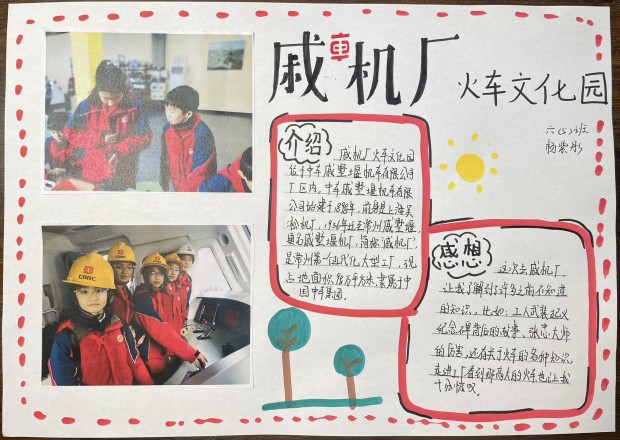 戚机厂
火车文化园
六(5)班
介绍
戚机厂火车文化园
位于中车戚墅堰机车有限公司
厂区内。中车戚墅堰机车有限
公司始建于1898年，前身是上海吴
淞机厂，1936年迁至常州戚墅堰，
更名戚墅堰机厂，简称"戚机厂"，
是常州第一近代化大型工厂，现
占地面积
国中车集团。
感想
这次去戚机厂，
让我了解到许多之前不知道
的知识，比如：工人武装起义
纪念碑背后的故事、张忠大师
的厉害，还有关于火车的各种知识，
走进工厂看到那高大的火车也让我
十分惊叹。
CRRC